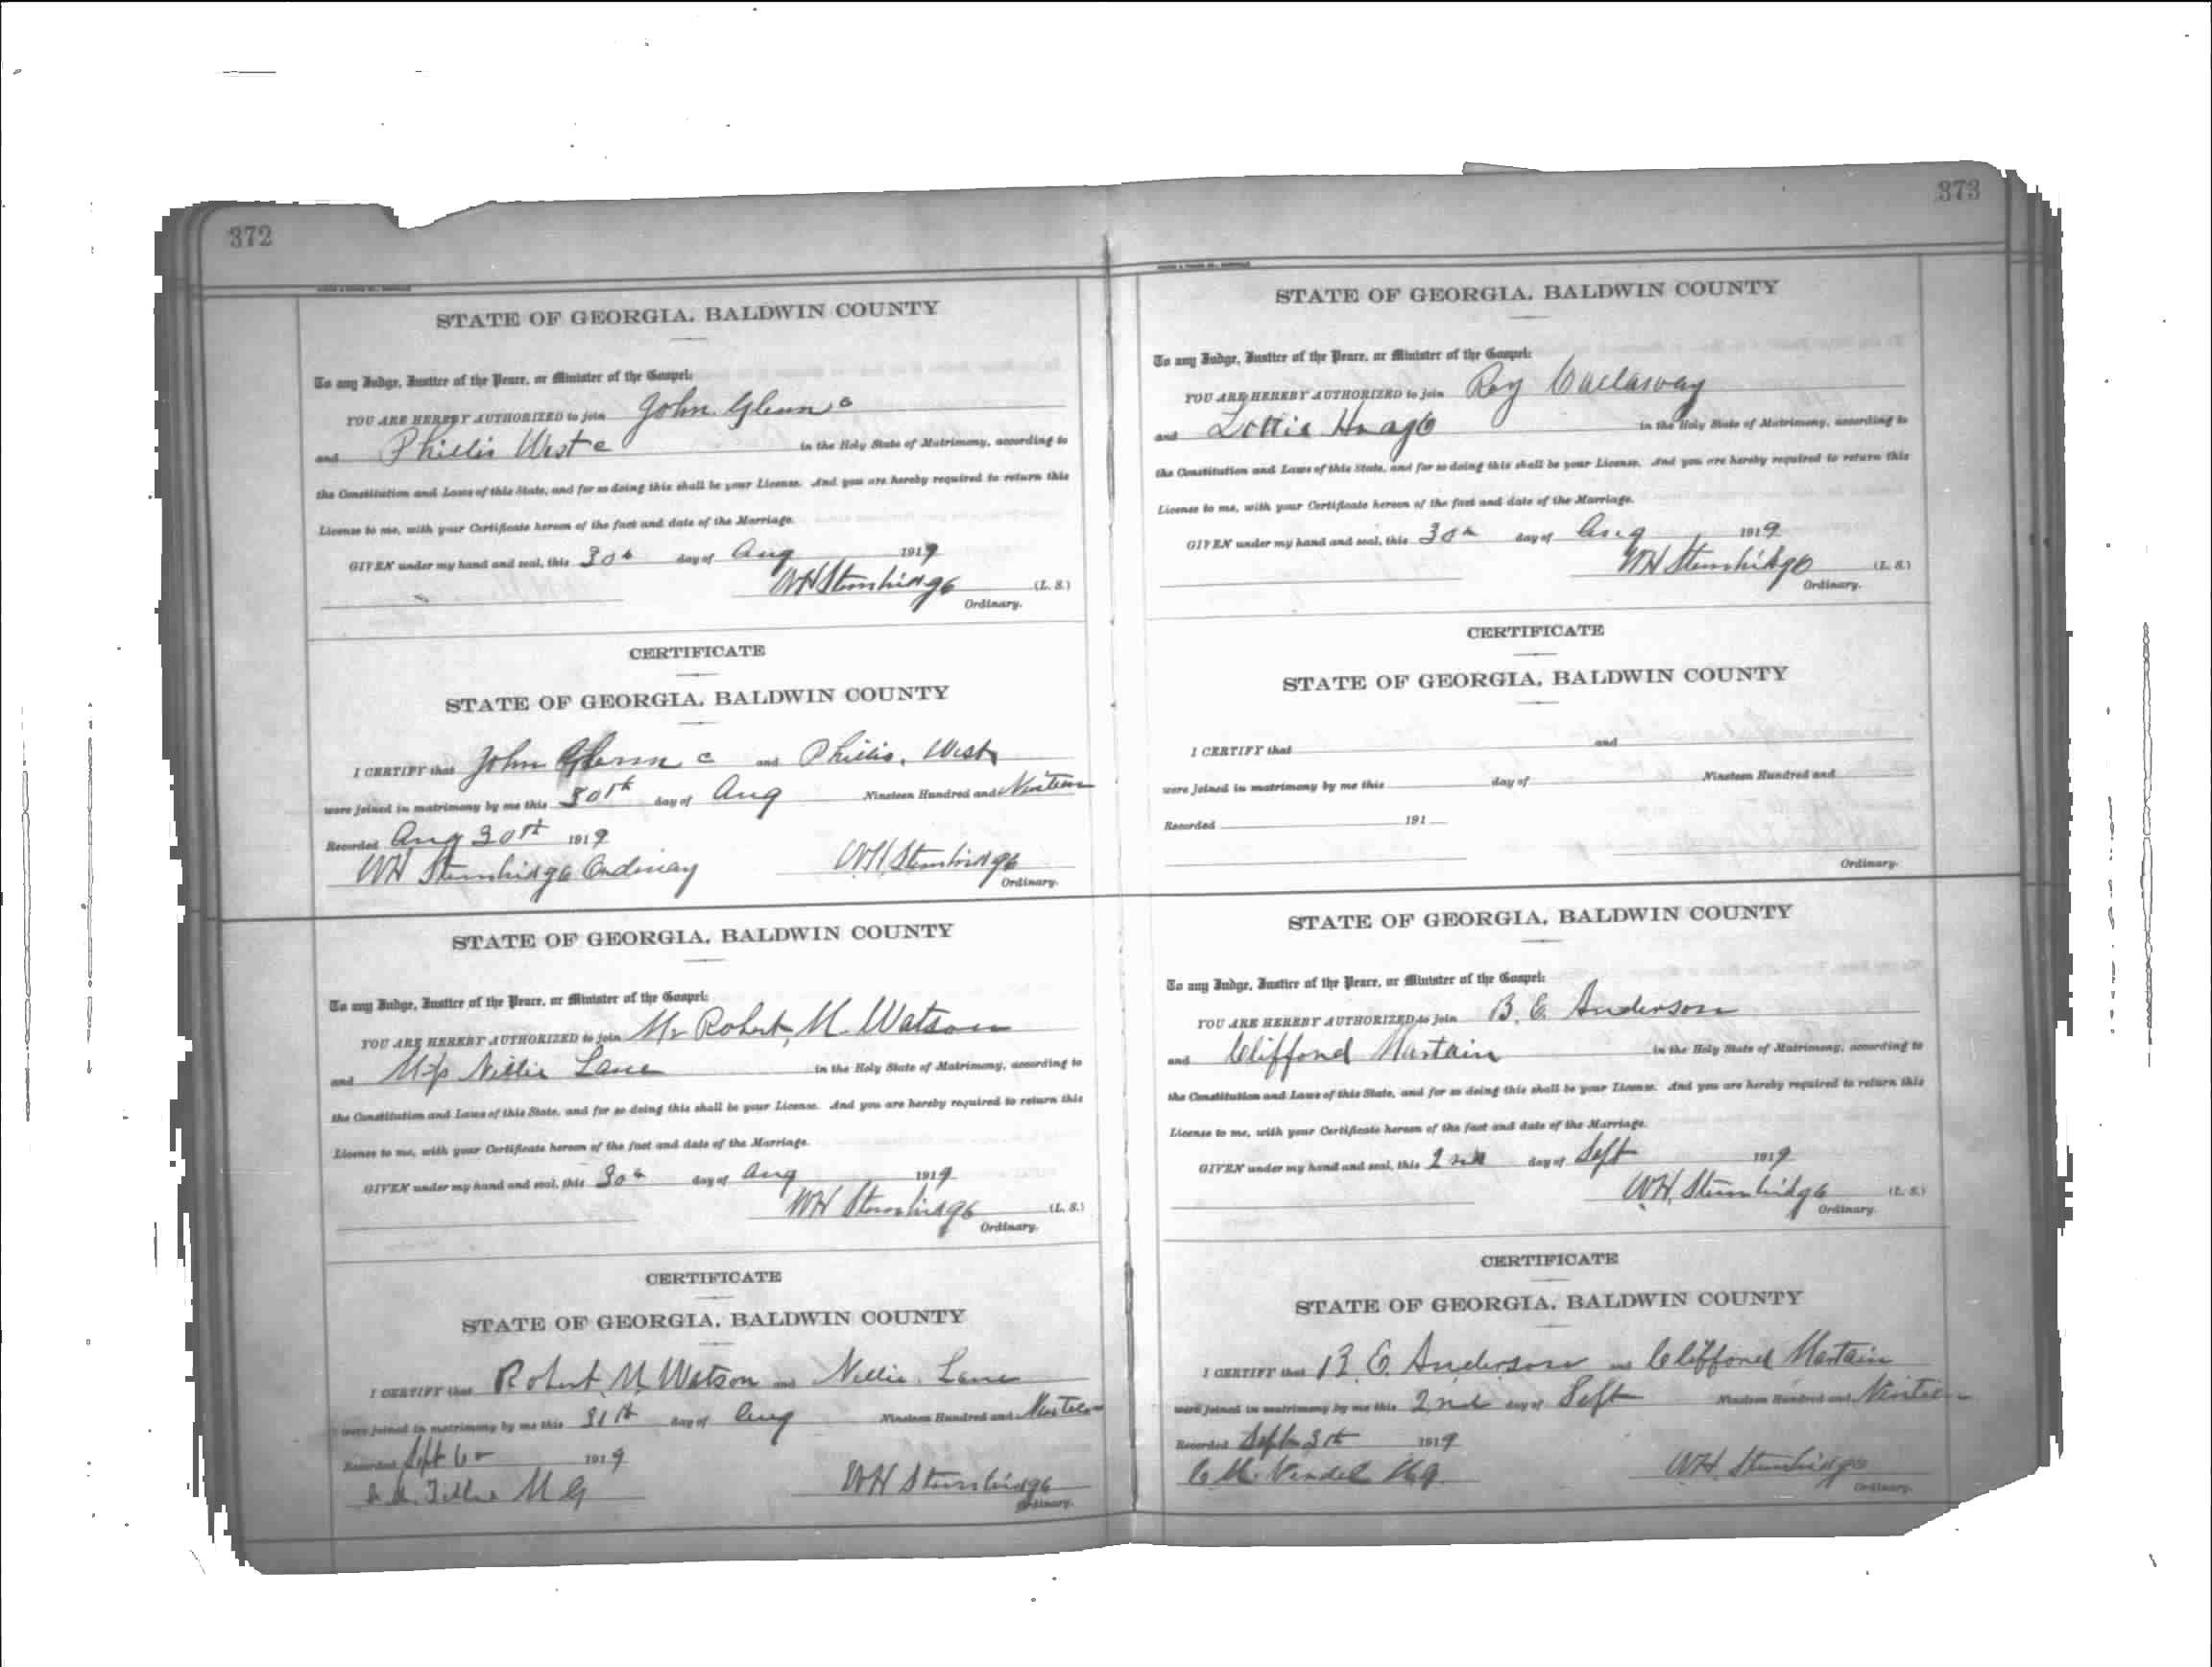 372
STATE OF GEORGIA, BALDWIN COUNTY
To any Judge, Justice of the Peace, or Minister of the Gospel:
YOU ARE HEREBY AUTHORIZED to join John Glenn c
and Phillis West c in the Holy State of Matrimony, according to
the Constitution and Laws of this State, and for so doing this shall be your License. And you are hereby required to return this
License to me, with your Certificate hereon of the fact and date of the Marriage.
GIVEN under my hand and seal, this 30th day of Aug 1919
WH Stembridge (L. S.)
Ordinary.
CERTIFICATE
STATE OF GEORGIA, BALDWIN COUNTY
I CERTIFY that John Glenn c and Phillis West
were joined in matrimony by me this 30th day of Aug Nineteen Hundred and Ninteen
Recorded Aug 30th 1919
WH Stembridge Ordinary WH Stembridge
Ordinary.
STATE OF GEORGIA, BALDWIN COUNTY
To any Judge, Justice of the Peace, or Minister of the Gospel:
YOU ARE HEREBY AUTHORIZED to join Mr Robert M. Watson
and Miss Nellie Lane in the Holy State of Matrimony, according to
the Constitution and Laws of this State, and for so doing this shall be your License. And you are hereby required to return this
License to me, with your Certificate hereon of the fact and date of the Marriage.
GIVEN under my hand and seal, this 30th day of Aug 1919
WH Stembridge (L. S.)
Ordinary.
CERTIFICATE
STATE OF GEORGIA, BALDWIN COUNTY
I CERTIFY that Robert M Watson and Nellie Lane
were joined in matrimony by me this 31th day of Aug Nineteen Hundred and Ninteen
Recorded Sept 6th 1919
M G WH Stembridge
Ordinary.
373
STATE OF GEORGIA, BALDWIN COUNTY
To any Judge, Justice of the Peace, or Minister of the Gospel:
YOU ARE HEREBY AUTHORIZED to join Roy Callaway
and Lottie in the Holy State of Matrimony, according to
the Constitution and Laws of this State, and for so doing this shall be your License. And you are hereby required to return this
License to me, with your Certificate hereon of the fact and date of the Marriage.
GIVEN under my hand and seal, this 30th day of Aug 1919
WH Stembridge (L. S.)
Ordinary.
CERTIFICATE
STATE OF GEORGIA, BALDWIN COUNTY
I CERTIFY that and
were joined in matrimony by me this day of Nineteen Hundred and
Recorded 191
Ordinary.
STATE OF GEORGIA, BALDWIN COUNTY
To any Judge, Justice of the Peace, or Minister of the Gospel:
YOU ARE HEREBY AUTHORIZED to join B. E. Anderson
and Clifford Martain in the Holy State of Matrimony, according to
the Constitution and Laws of this State, and for so doing this shall be your License. And you are hereby required to return this
License to me, with your Certificate hereon of the fact and date of the Marriage.
GIVEN under my hand and seal, this 2nd day of Sept 1919
WH Stembridge (L. S.)
Ordinary.
CERTIFICATE
STATE OF GEORGIA, BALDWIN COUNTY
I CERTIFY that B. E. Anderson and Clifford Martain
were joined in matrimony by me this 2nd day of Sept Nineteen Hundred and Ninteen
Recorded Sept 3th 1919
WH Stembridge
Ordinary.